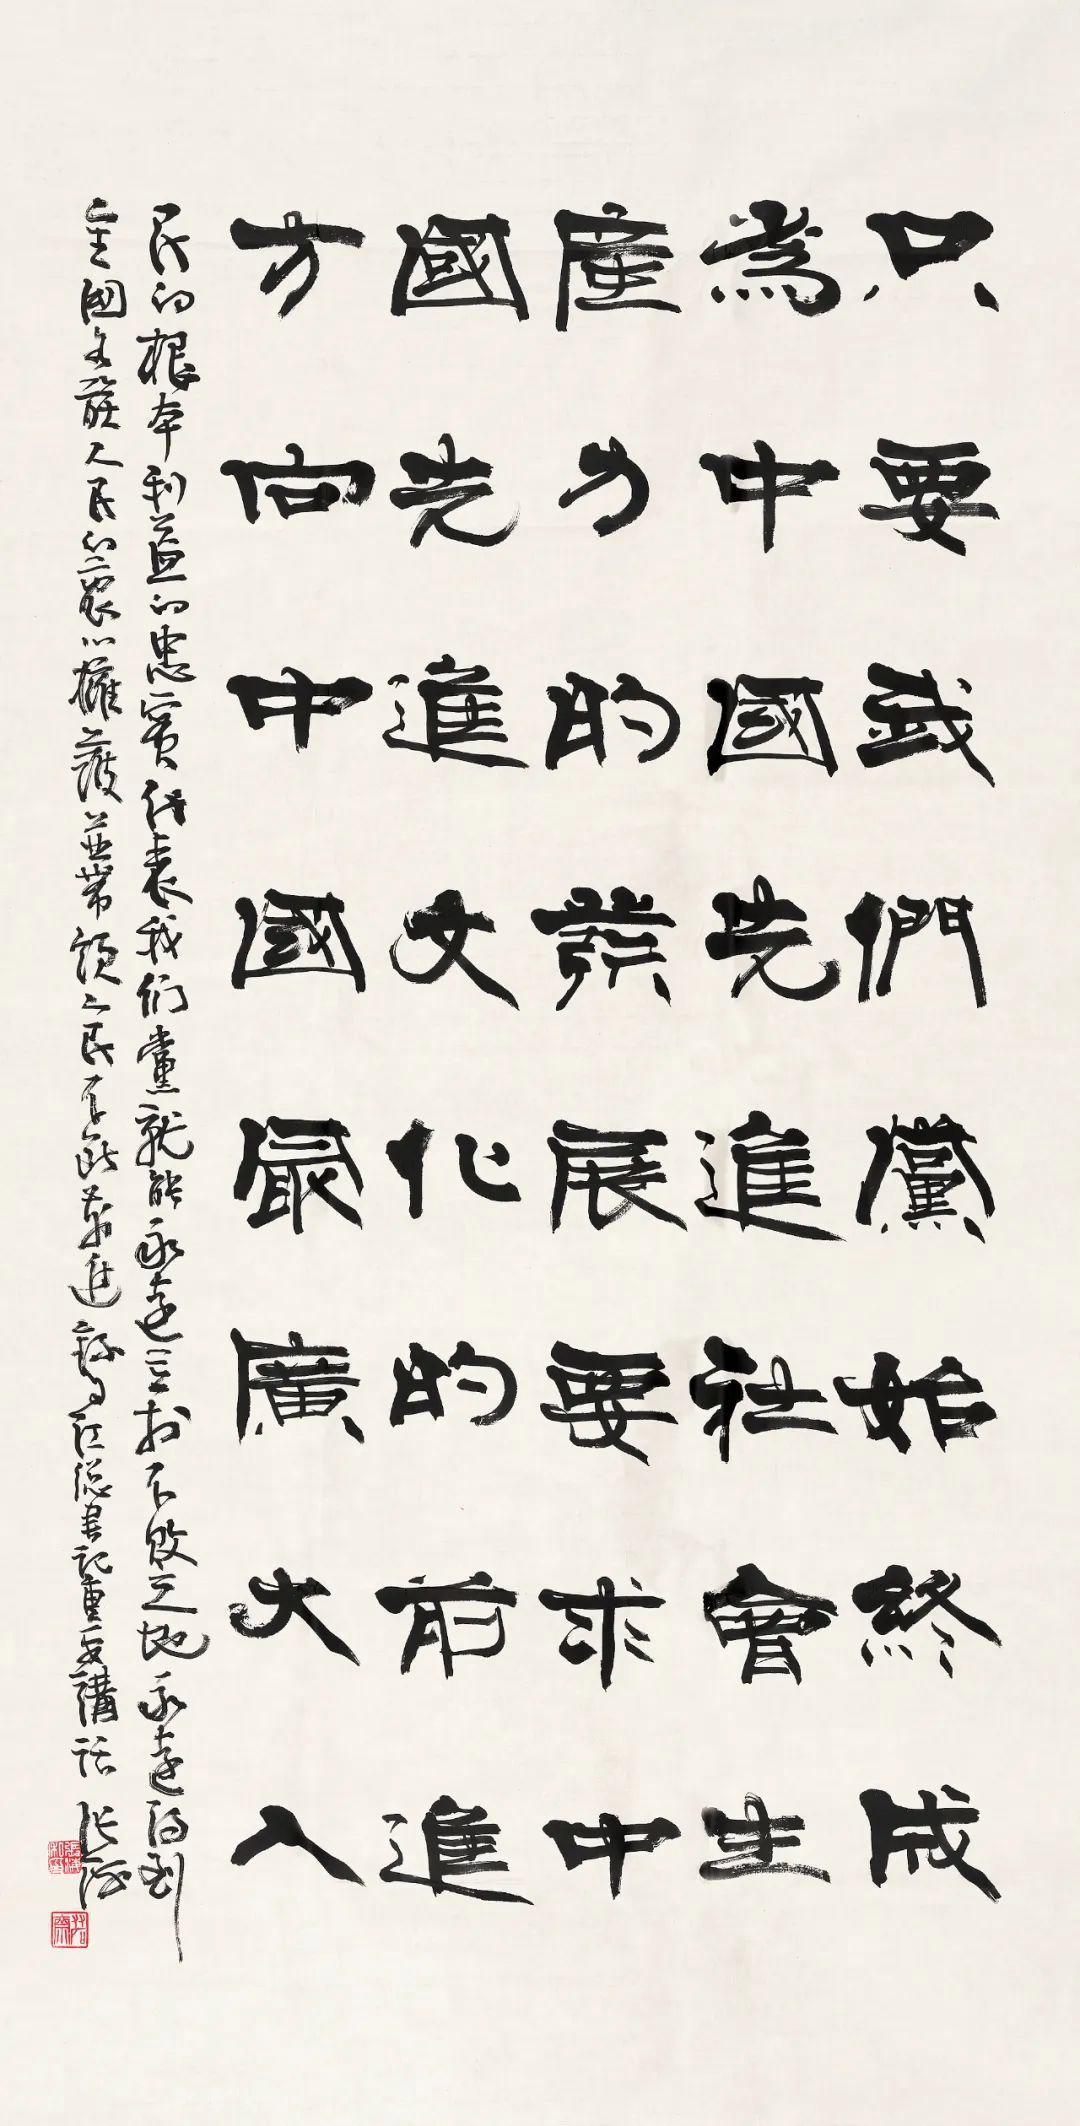 只要我們黨始終成
為中國先進社會生
產力的發展要求中
國先進文化的前進
方向中國最廣大人
民的根本利益的忠實代表我们黨就能永遠立於不敗之地永遠得到
全國各族人民的衷心擁護並帶領人民不斷前進 錄自江總書記重要講話 張